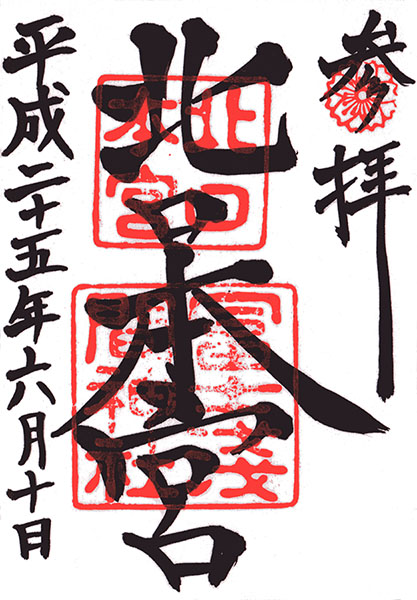 参拝
北口
本宮
北口本宮
冨士浅間神社
平成二十五年六月十日